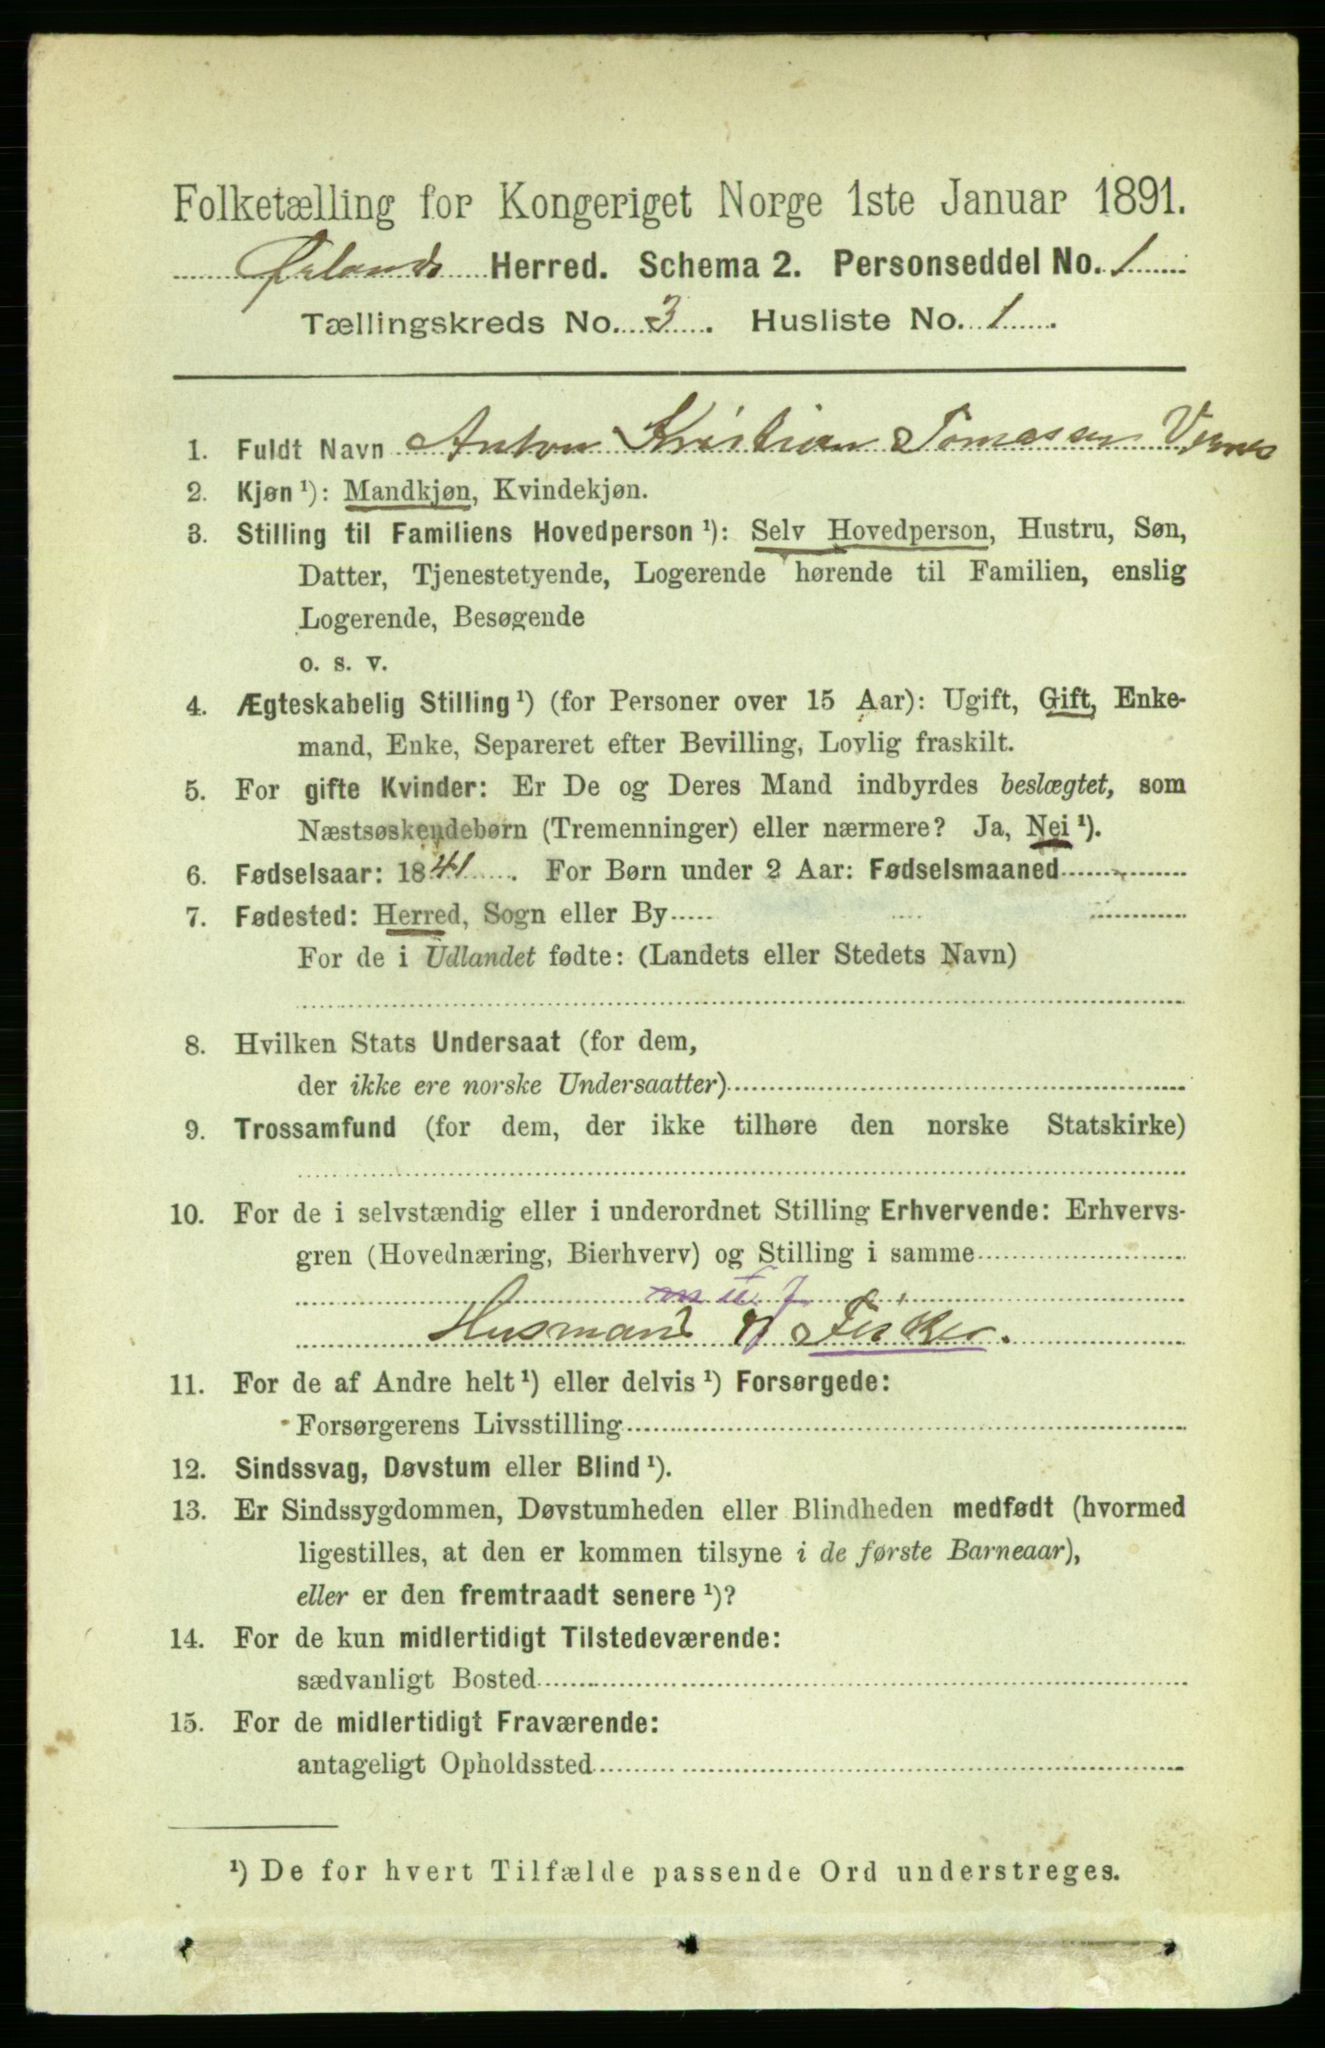 Folketælling for Kongeriget Norge 1ste Januar 1891.
Ørlands Herred. Schema 2. Personseddel No. 1
Tællingskreds No. 3. Husliste No. 1.
1. Fuldt Navn Anton Kristian Tomasen Vernes
2. Kjøn ¹): Mandkjøn, Kvindekjøn.
3. Stilling til Familiens Hovedperson ¹): Selv Hovedperson, Hustru, Søn,
Datter, Tjenestetyende, Logerende hørende til Familien, enslig
Logerende, Besøgende
o. s. v.
4. Ægteskabelig Stilling ¹) (for Personer over 15 Aar): Ugift, Gift, Enke-
mand, Enke, Separeret efter Bevilling, Lovlig fraskilt.
5. For gifte Kvinder: Er De og Deres Mand indbyrdes beslægtet, som
Næstsøskendebørn (Tremenninger) eller nærmere? Ja, Nei ¹).
6. Fødselsaar: 1841. For Børn under 2 Aar: Fødselsmaaned
7. Fødested: Herred, Sogn eller By
For de i Udlandet fødte: (Landets eller Stedets Navn)
8. Hvilken Stats Undersaat (for dem,
der ikke ere norske Undersaatter)
9. Trossamfund (for dem, der ikke tilhøre den norske Statskirke)
10. For de i selvstændig eller i underordnet Stilling Erhvervende: Erhvervs-
gren (Hovednæring, Bierhverv) og Stilling i samme
m u j
Husmand og Fisker.
11. For de af Andre helt ¹) eller delvis ¹) Forsørgede:
Forsørgerens Livsstilling
12. Sindssvag, Døvstum eller Blind ¹).
13. Er Sindssygdommen, Døvstumheden eller Blindheden medfødt (hvormed
ligestilles, at den er kommen tilsyne i de første Barneaar),
eller er den fremtraadt senere ¹)?
14. For de kun midlertidigt Tilstedeværende:
sædvanligt Bosted
15. For de midlertidigt Fraværende:
antageligt Opholdssted
¹) De for hvert Tilfælde passende Ord understreges.